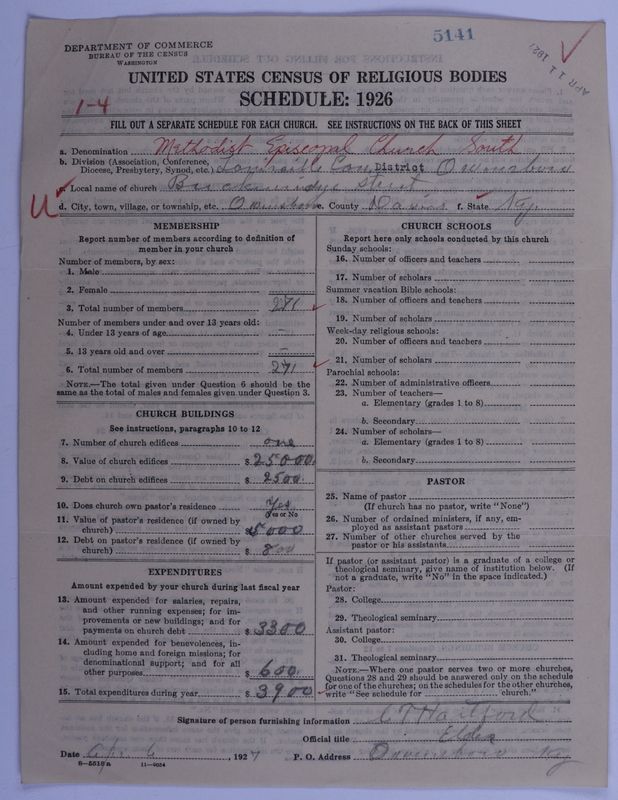 5141
APR 11 1927
DEPARTMENT OF COMMERCE
BUREAU OF THE CENSUS
WASHINGTON
UNITED STATES CENSUS OF RELIGIOUS BODIES
1-4
SCHEDULE: 1926
FILL OUT A SEPARATE SCHEDULE FOR EACH CHURCH. SEE INSTRUCTIONS ON THE BACK OF THIS SHEET
a. Denomination Methodist Episcopal Church South
b. Division (Association, Conference, Diocese, Presbytery, Synod, etc.) Louisville Con District Owensboro
c. Local name of church Breckinridge Street
d. City, town, village, or township, etc. Owensboro e. County Daviess f. State Ky.
MEMBERSHIP
Report number of members according to definition of
member in your church
Number of members, by sex:
1. Male
2. Female
3. Total number of members 271
Number of members under and over 13 years old:
4. Under 13 years of age –
5. 13 years old and over –
6. Total number of members 271
NOTE.—The total given under Question 6 should be the
same as the total of males and females given under Question 3.
CHURCH BUILDINGS
See instructions, paragraphs 10 to 12
7. Number of church edifices one
8. Value of church edifices $ 25000.
9. Debt on church edifices $ 2500.
10. Does church own pastor's residence Yes
Yes or No
11. Value of pastor's residence (if owned by
church) $ 5000
12. Debt on pastor's residence (if owned by
church) $ 800
EXPENDITURES
Amount expended by your church during last fiscal year
13. Amount expended for salaries, repairs,
and other running expenses; for im-
provements or new buildings; and for
payments on church debt $ 3300
14. Amount expended for benevolences, in-
cluding home and foreign missions; for
denominational support; and for all
other purposes $ 600.
15. Total expenditures during year $ 3900
CHURCH SCHOOLS
Report here only schools conducted by this church
Sunday schools:
16. Number of officers and teachers
17. Number of scholars
Summer vacation Bible schools:
18. Number of officers and teachers
19. Number of scholars
Week-day religious schools:
20. Number of officers and teachers
21. Number of scholars
Parochial schools:
22. Number of administrative officers
23. Number of teachers—
a. Elementary (grades 1 to 8)
b. Secondary
24. Number of scholars—
a. Elementary (grades 1 to 8)
b. Secondary
PASTOR
25. Name of pastor
(If church has no pastor, write "None")
26. Number of ordained ministers, if any, em-
ployed as assistant pastors
27. Number of other churches served by the
pastor or his assistants
If pastor (or assistant pastor) is a graduate of a college or
theological seminary, give name of institution below. (If
not a graduate, write "No" in the space indicated.)
Pastor:
28. College
29. Theological seminary
Assistant pastor:
30. College
31. Theological seminary
NOTE.—Where one pastor serves two or more churches,
Questions 28 and 29 should be answered only on the schedule
for one of the churches; on the schedules for the other churches,
write "See schedule for church."
Signature of person furnishing information Hartford
Official title Elder
Date Apr. 6, 1927 P. O. Address Owensboro Ky
8—5518a 11—9024